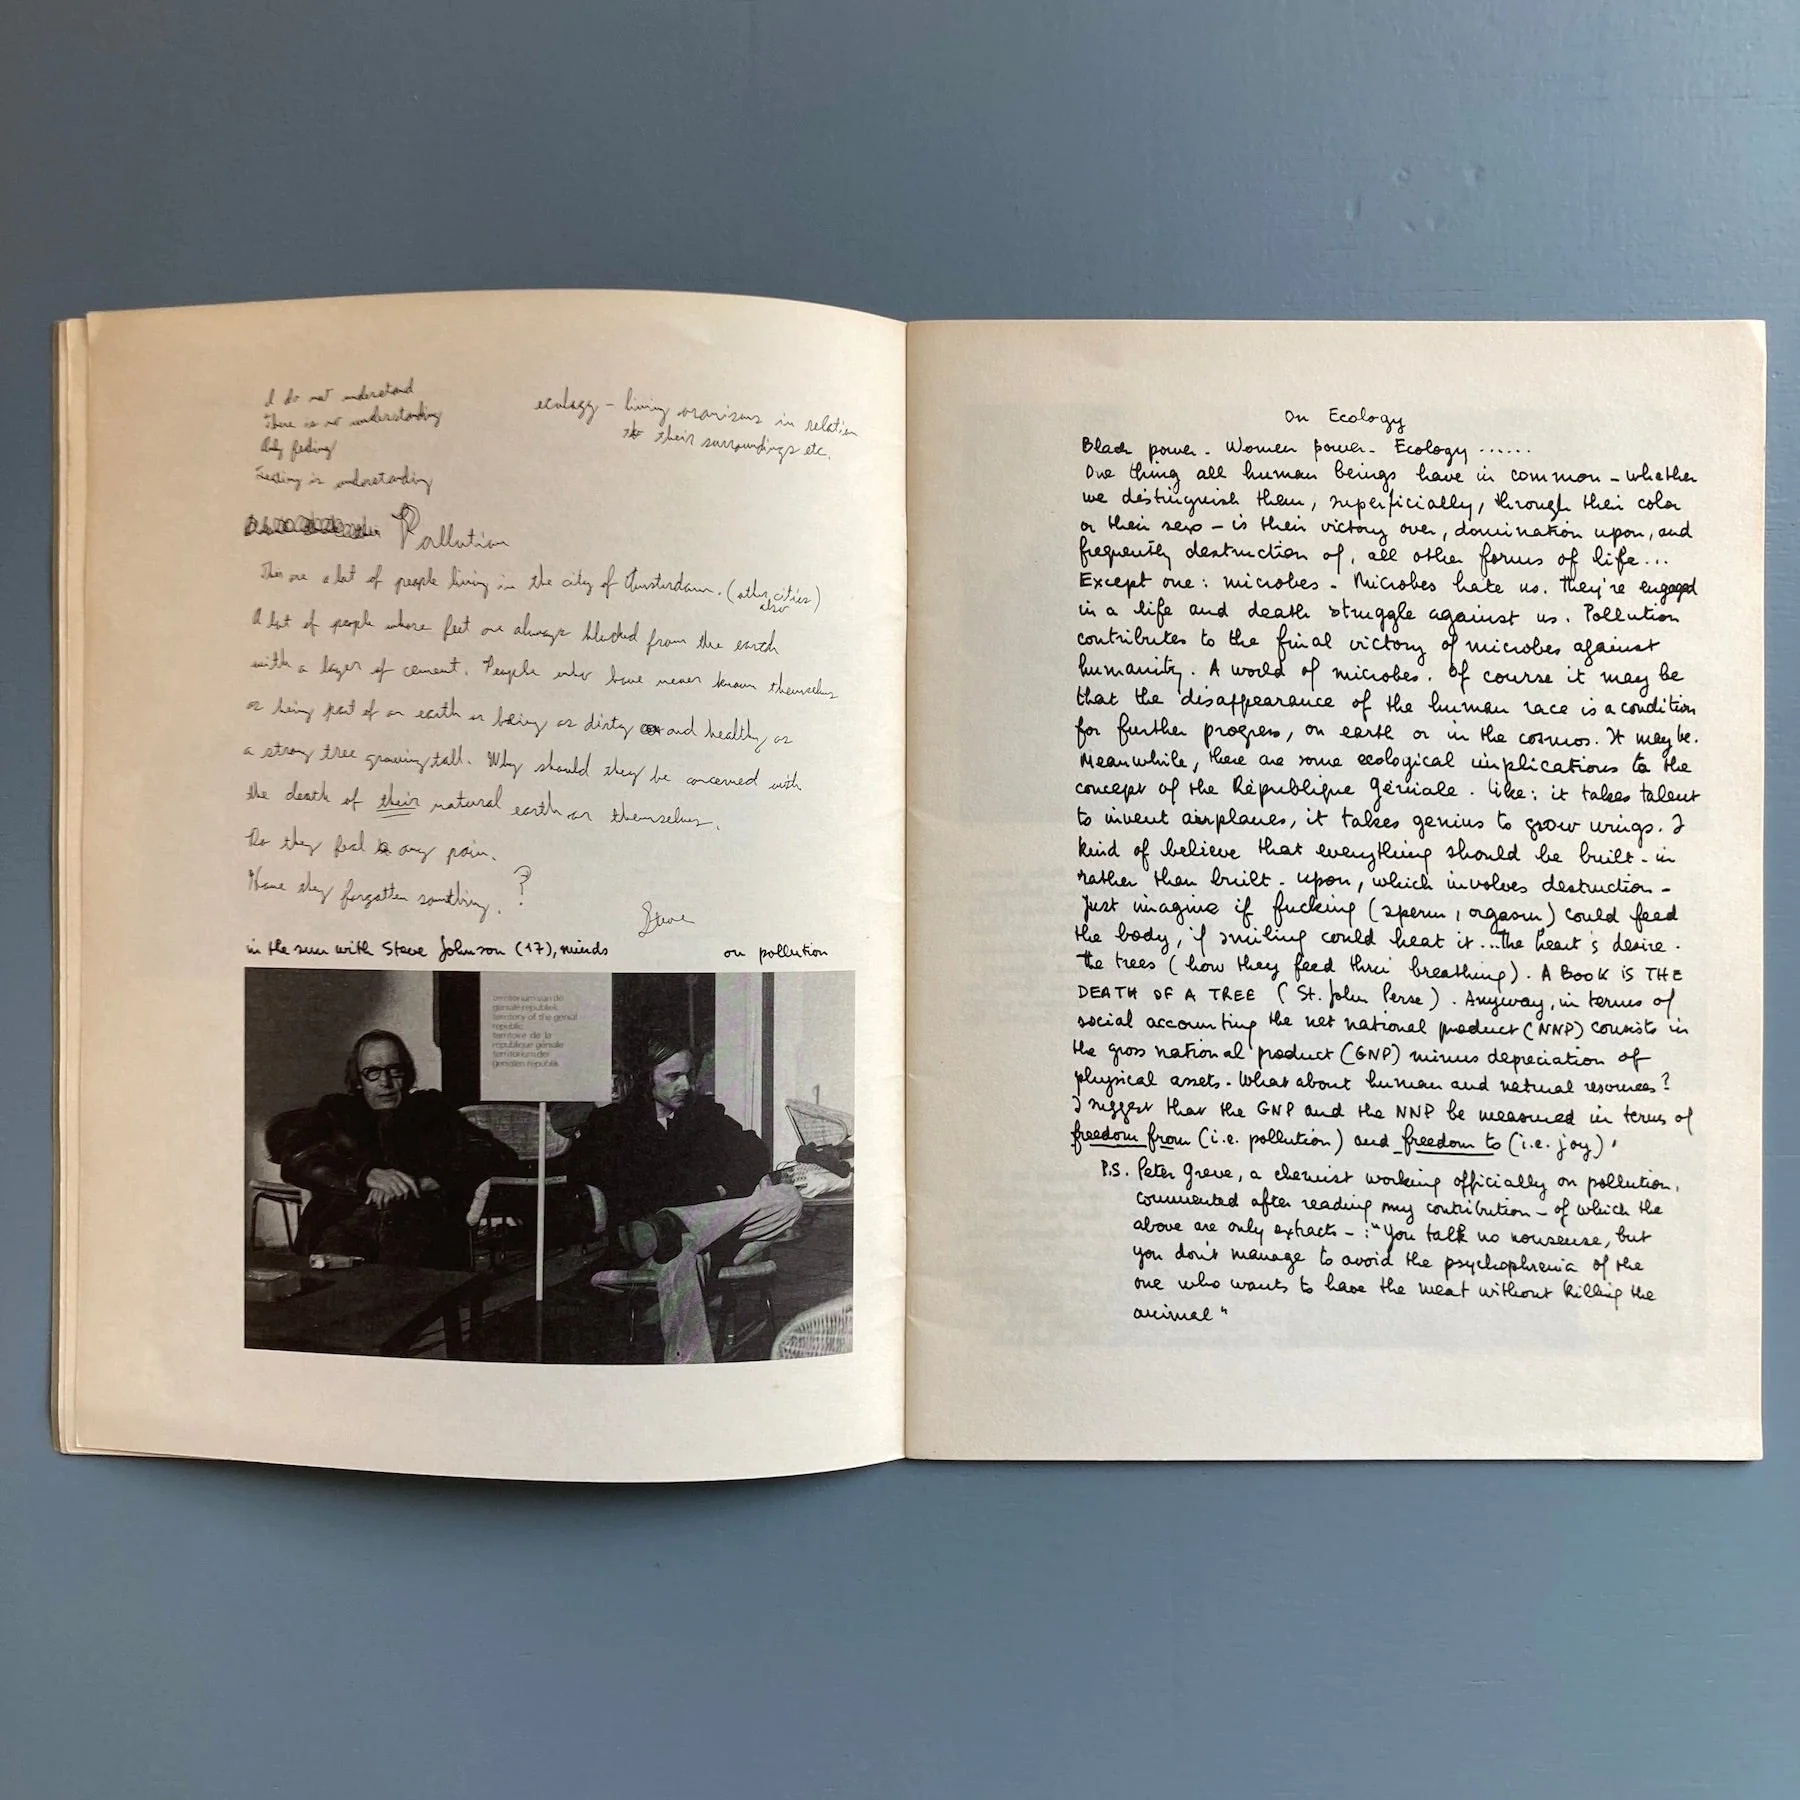 I do not understand
There is no understanding
Only feeling
Feeling is understanding
ecology – living organisms in relation
to their surroundings etc.
Pollution
There are a lot of people living in the city of Amsterdam. (other cities also)
A lot of people whose feet are always blocked from the earth
with a layer of cement. People who have never known themselves
as being part of an earth as being as dirty and healthy as
a strong tree growing tall. Why should they be concerned with
the death of their natural earth or themselves.
Do they feel any pain.
Have they forgotten something. ?
Steve
in the sun with Steve Johnson (17), minds on pollution
territorium van de
geniale republiek
territory of the genial
republic
territoire de la
république géniale
territorium der
genialen republik
On Ecology
Black power - Women power - Ecology ......
One thing all human beings have in common – whether
we distinguish them, superficially, through their color
or their sex – is their victory over, domination upon, and
frequently destruction of, all other forms of life...
Except one: microbes - Microbes hate us. They're engaged
in a life and death struggle against us. Pollution
contributes to the final victory of microbes against
humanity. A world of microbes. Of course it may be
that the disappearance of the human race is a condition
for further progress, on earth or in the cosmos. It may be.
Meanwhile, there are some ecological implications to the
concept of the République Géniale. Like: it takes talent
to invent airplanes, it takes genius to grow wings. I
kind of believe that everything should be built-in
rather than built-upon, which involves destruction –
Just imagine if fucking (sperm, orgasm) could feed
the body, if smiling could heat it...the heart's desire.
The trees (how they feed thru breathing). A BOOK IS THE
DEATH OF A TREE (St. John Perse). Anyway, in terms of
social accounting the net national product (NNP) consists in
the gross national product (GNP) minus depreciation of
physical assets. What about human and natural resources?
I suggest that the GNP and the NNP be measured in terms of
freedom from (i.e. pollution) and freedom to (i.e. joy).
P.S. Peter Greve, a chemist working officially on pollution,
commented after reading my contribution – of which the
above are only extracts –: "You talk no nonsense, but
you don't manage to avoid the psychophrenia of the
one who wants to have the meat without killing the
animal"